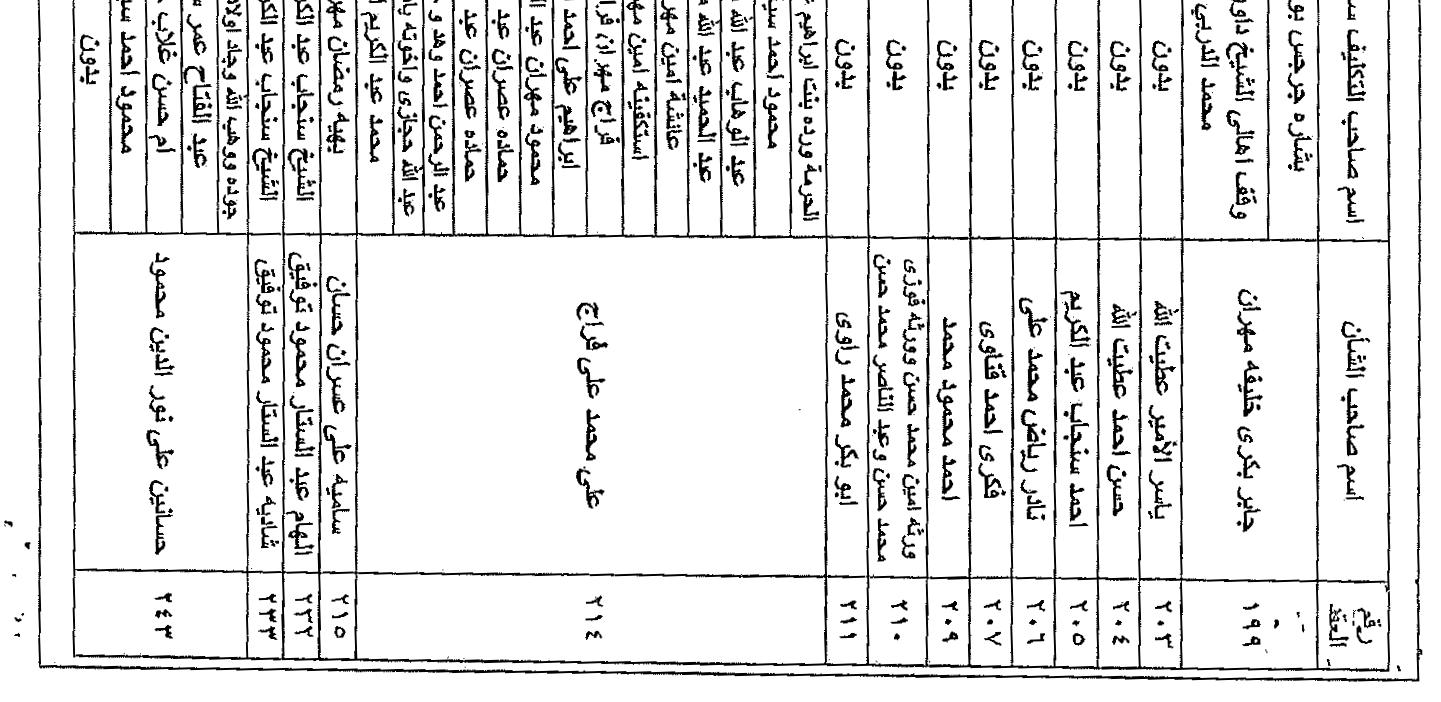 رقم العقد
اسم صاحب الشأن
اسم صاحب التكليف
١٩٩
جابر بكرى خليفه مهران
بشاره جرجس
وقف اهالى الشيخ
محمد الدربي
٢٠٣
ياسر الأمير عطيت الله
بدون
٢٠٤
حسن احمد عطيت الله
بدون
٢٠٥
احمد سنجاب عبد الكريم
بدون
٢٠٦
نادر رياض محمد على
بدون
٢٠٧
فكرى احمد قناوى
بدون
٢٠٩
احمد محمود محمد
بدون
٢١٠
ورثه امين محمد حسن وورثه فوزى
محمد حسن وعبد الناصر محمد حسن
بدون
٢١١
ابو بكر محمد راوى
بدون
٢١٤
على محمد على فراج
الحرمة ورده بنت ابراهيم
محمود احمد
عبد الوهاب عبد الله
عبد الحميد عبد الله
عائشة امين
استكفينه امين
فراج مهران
ابراهيم على احمد
محمود مهران عبد
حماده عصران عبد
حماده عصران عبد
عبد الرحمن احمد وهد و
عبد الله حجازى واخوته
محمد عبد الكريم
٢١٥
ساميه على عسران حسان
يهيه رمضان
٢٣٢
الهام عبد الستار محمود توفيق
الشيخ سنجاب عبد
٢٣٣
شاديه عبد الستار محمود توفيق
الشيخ سنجاب عبد
٢٤٣
حسانين على نور الدين محمود
جوده ووهب الله وجاد اولاد
عبد الفتاح عمر
ام حسن غلاب
محمود احمد
بدون